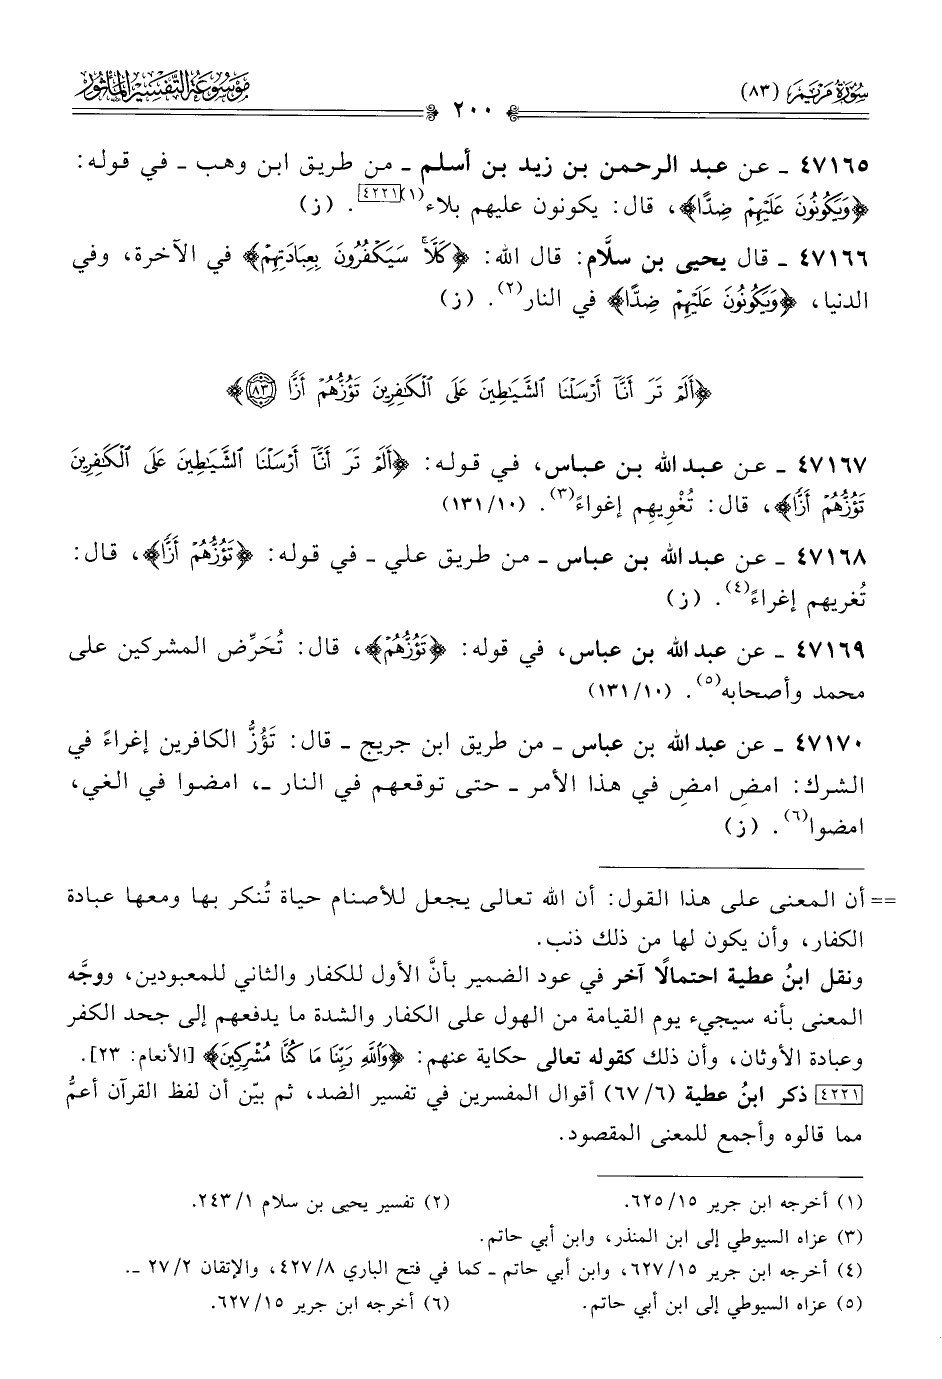 سُورَةُ مَرْيَم (٨٣)
٢٠٠
مَوْسُوعَةُ التَّفْسِيرِ المَأْثُور
٤٧١٦٥ ـ عن عبد الرحمن بن زيد بن أسلم ـ من طريق ابن وهب ـ في قوله:
﴿وَيَكُونُونَ عَلَيْهِمْ ضِدًّا﴾، قال: يكونون عليهم بلاء(١)[٤٢٢١]. (ز)
٤٧١٦٦ ـ قال يحيى بن سلَّام: قال الله: ﴿كَلَّا سَيَكْفُرُونَ بِعِبَادَتِهِمْ﴾ في الآخرة، وفي
الدنيا، ﴿وَيَكُونُونَ عَلَيْهِمْ ضِدًّا﴾ في النار(٢). (ز)
﴿أَلَمْ تَرَ أَنَّا أَرْسَلْنَا الشَّيَاطِينَ عَلَى الْكَافِرِينَ تَؤُزُّهُمْ أَزًّا ٨٣﴾
٤٧١٦٧ ـ عن عبد الله بن عباس، في قوله: ﴿أَلَمْ تَرَ أَنَّا أَرْسَلْنَا الشَّيَاطِينَ عَلَى الْكَافِرِينَ
تَؤُزُّهُمْ أَزًّا﴾، قال: تُغْوِيهِم إغواءً(٣). (١٠/١٣١)
٤٧١٦٨ ـ عن عبد الله بن عباس ـ من طريق علي ـ في قوله: ﴿تَؤُزُّهُمْ أَزًّا﴾، قال:
تُغريهم إغراءً(٤). (ز)
٤٧١٦٩ ـ عن عبد الله بن عباس، في قوله: ﴿تَؤُزُّهُمْ﴾، قال: تُحَرِّض المشركين على
محمد وأصحابه(٥). (١٠/١٣١)
٤٧١٧٠ ـ عن عبد الله بن عباس ـ من طريق ابن جريج ـ قال: تَؤُزُّ الكافرين إغراءً في
الشرك: امضِ امضِ في هذا الأمر ـ حتى توقعهم في النار ـ، امضوا في الغي،
امضوا(٦). (ز)
== أن المعنى على هذا القول: أن الله تعالى يجعل للأصنام حياة تُنكر بها ومعها عبادة
الكفار، وأن يكون لها من ذلك ذنب.
ونقل ابنُ عطية احتمالًا آخر في عود الضمير بأنَّ الأول للكفار والثاني للمعبودين، ووجَّه
المعنى بأنه سيجيء يوم القيامة من الهول على الكفار والشدة ما يدفعهم إلى جحد الكفر
وعبادة الأوثان، وأن ذلك كقوله تعالى حكاية عنهم: ﴿وَاللَّهِ رَبِّنَا مَا كُنَّا مُشْرِكِينَ﴾ [الأنعام: ٢٣].
[٤٢٢١] ذكر ابنُ عطية (٦/٦٧) أقوال المفسرين في تفسير الضد، ثم بيّن أن لفظ القرآن أعمُّ
مما قالوه وأجمع للمعنى المقصود.
(١) أخرجه ابن جرير ١٥/٦٢٥.
(٢) تفسير يحيى بن سلام ١/٢٤٣.
(٣) عزاه السيوطي إلى ابن المنذر، وابن أبي حاتم.
(٤) أخرجه ابن جرير ١٥/٦٢٧، وابن أبي حاتم ـ كما في فتح الباري ٨/٤٢٧، والإتقان ٢/٢٧ ـ.
(٥) عزاه السيوطي إلى ابن أبي حاتم.
(٦) أخرجه ابن جرير ١٥/٦٢٧.